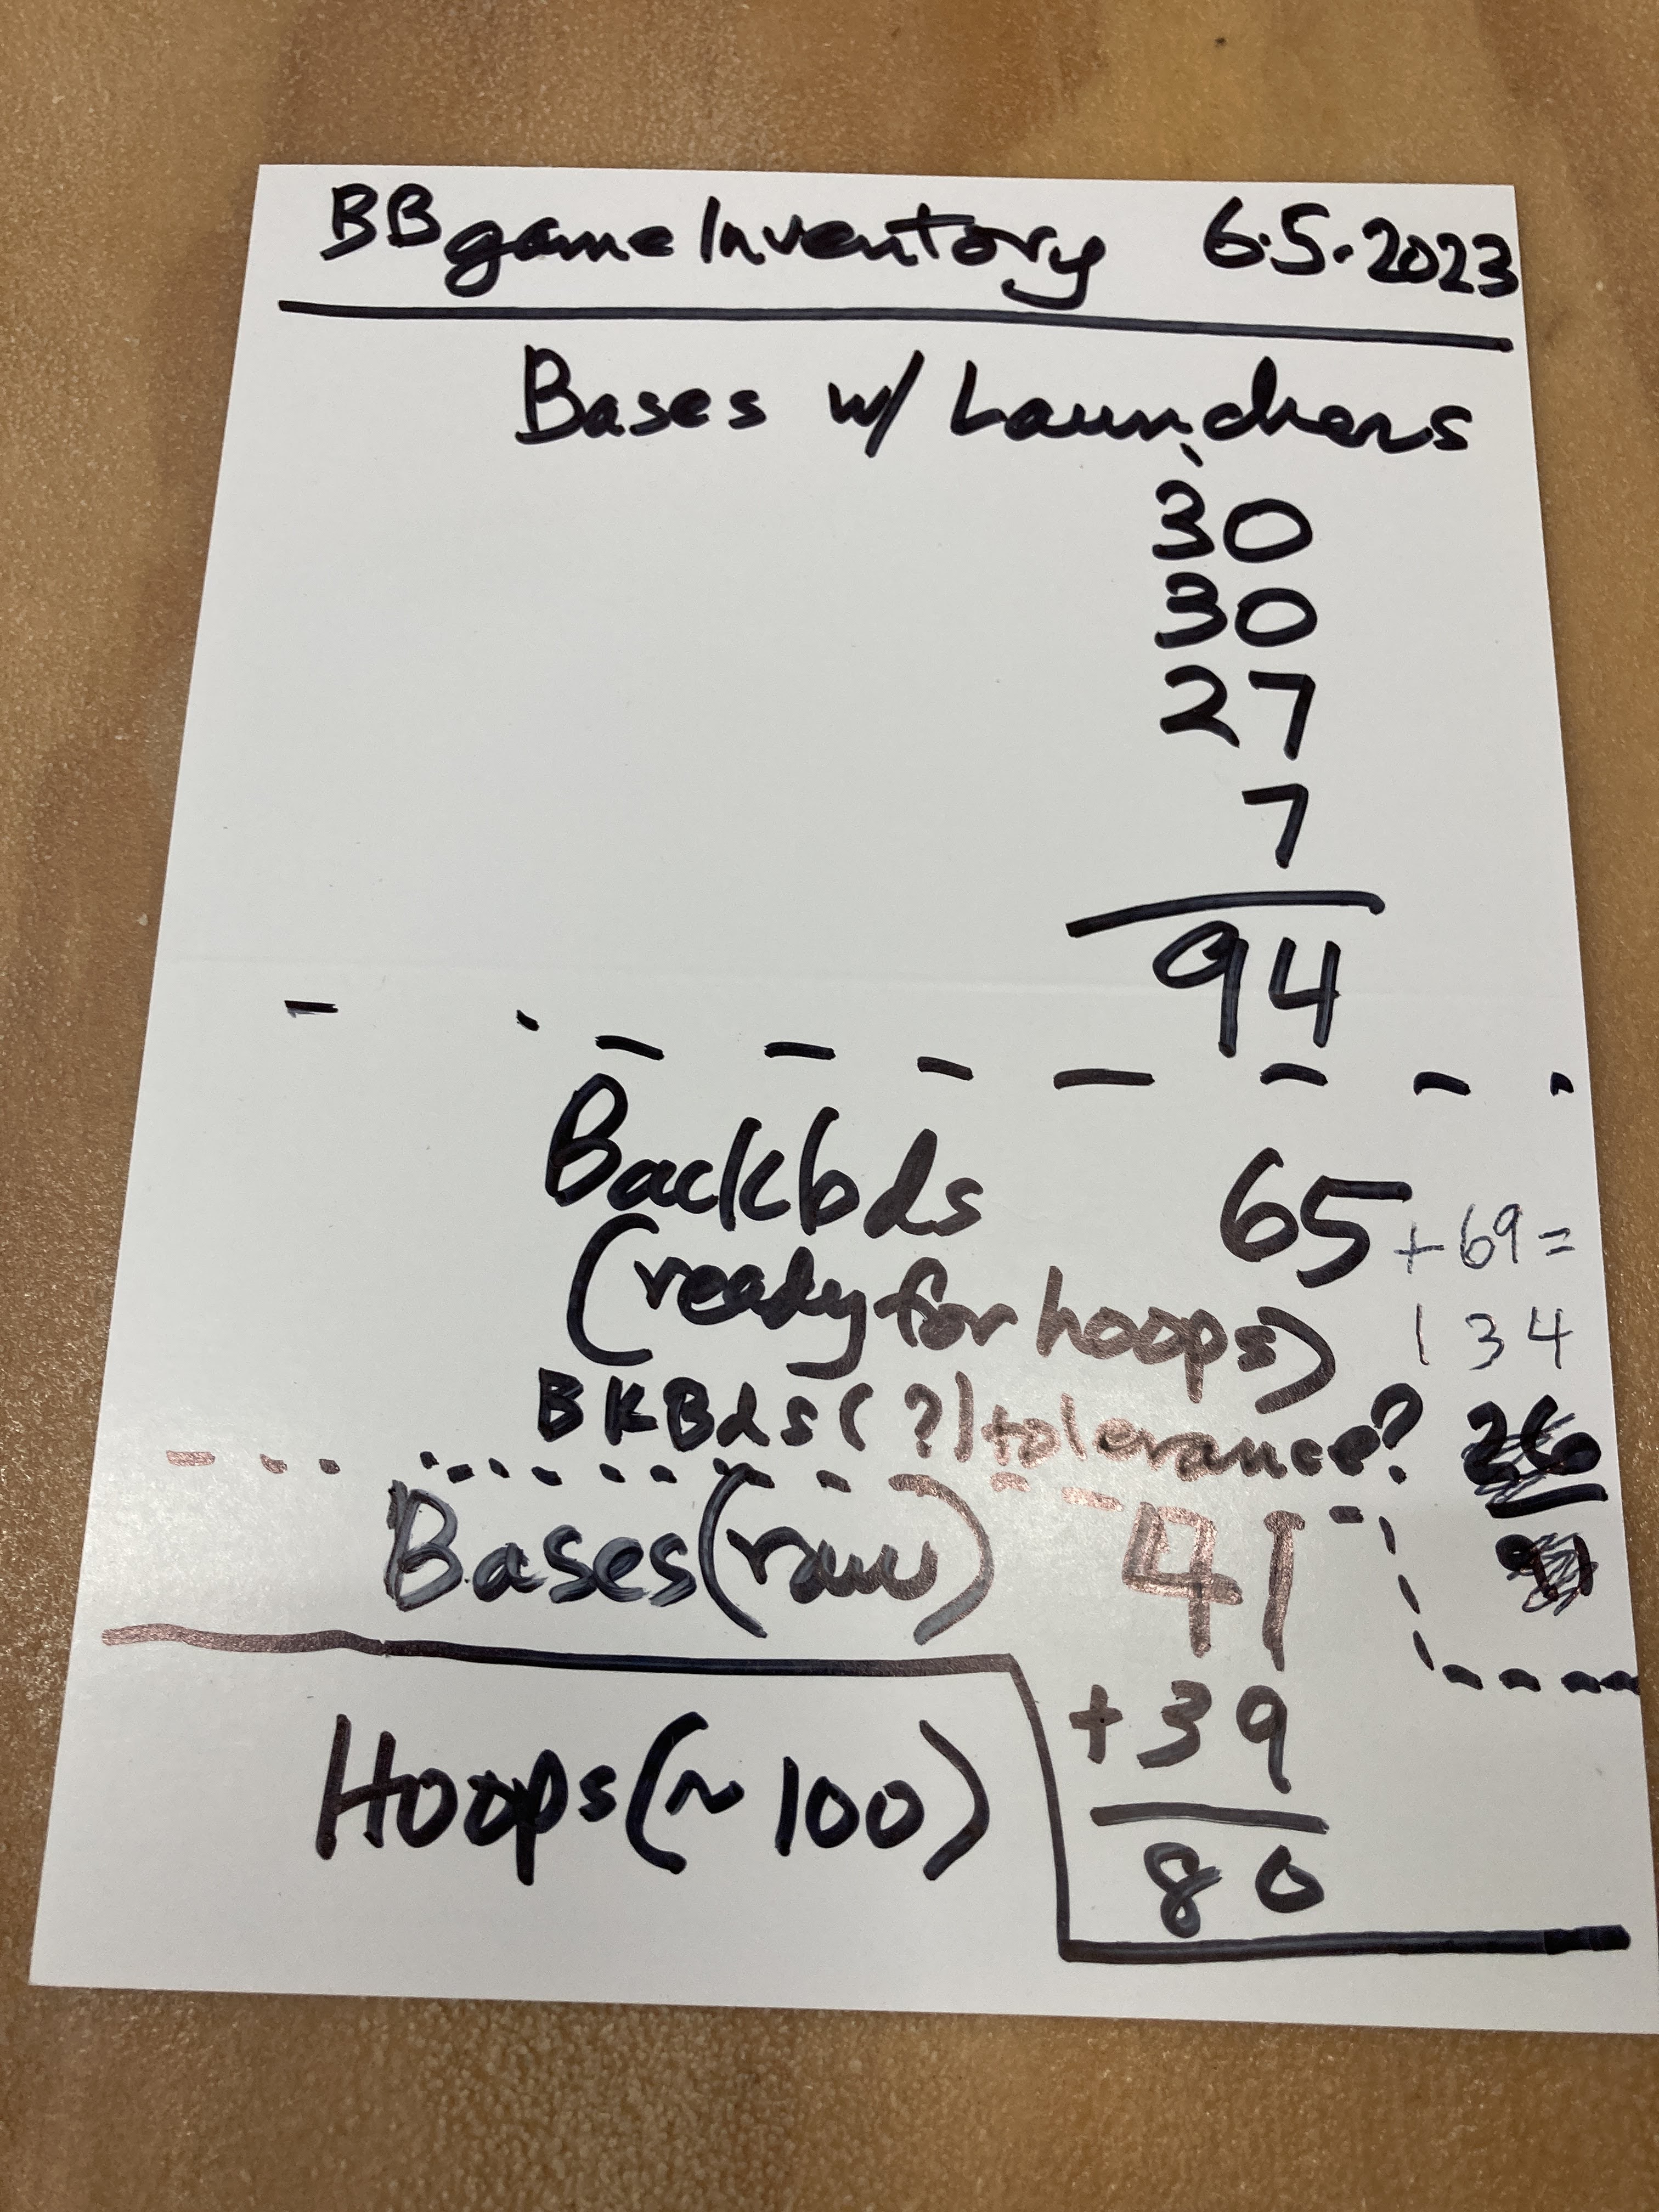 BB game Inventory 6.5.2023
Bases w/ Launchers
30
30
27
7
94
Backbds 65 + 69 =
(ready for hoops) 134
BKBds (?) tolerance?
Bases (raw) 41
+ 39
80
Hoops (~ 100)